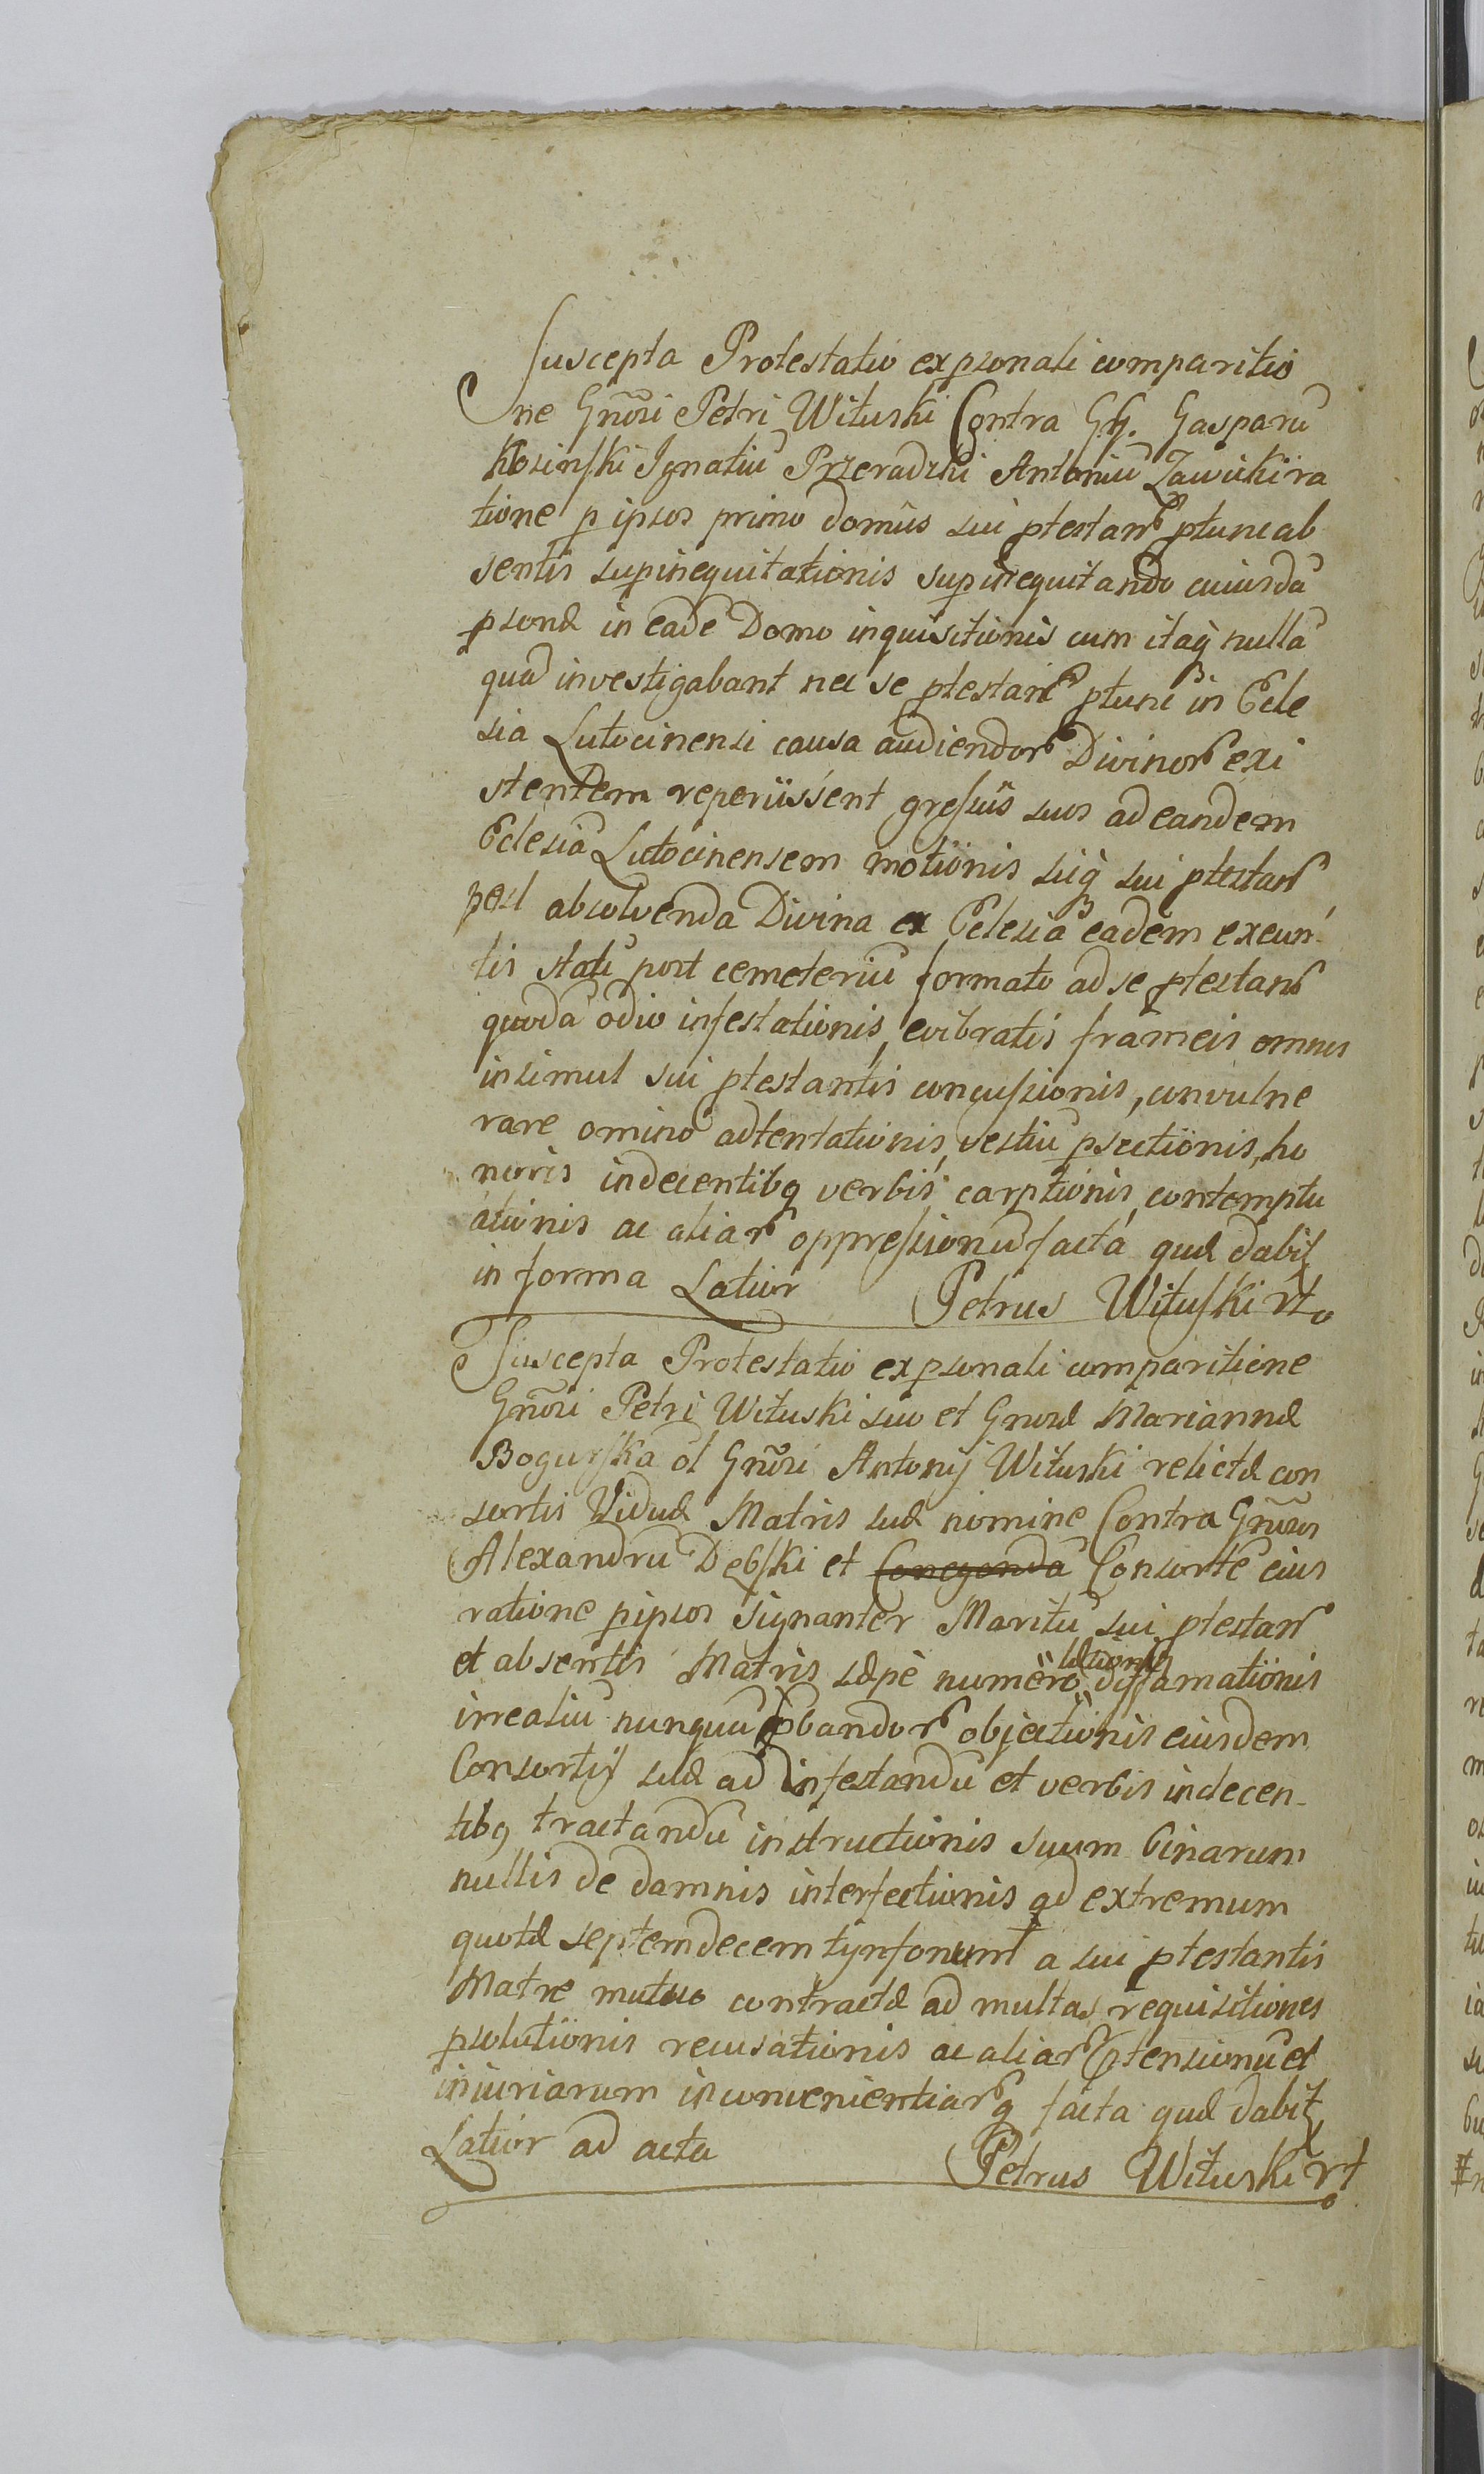 Suscepta Protestatio ex psonali comparitio
ne Gnõsi Petri Wituski Contra GG. Gasparũ
Kosinski Ignatiũ Przeradzki Antoniũ Zawicki ra
tione p ipsos primo domus sui ptestañ ptunc ab
sentis supinequitationis supinequitando cuiusdã
psonæ in eadẽ Domo inquisitionis cum itaq nullã
quã investigabant nec se ptestañ ptunc in Ecle
sia Lutocinensi causa audiendoŕ Divinoŕ exi
stentem reperiissent gressus suos ad eandem
Eclesiã Lutocinensem motionis siq sui ptestañ
post absolvenda Divina ex Eclesia eadem exeun
tis statũ post cemeteriũ formato ad se ptestañ
quodã odio infestationis, evibratis frameis omnes
insimul sui ptestantis concussionis, convulne
rare omino adtentationis, vestiũ psectionis, ho
noris indecentibq verbis carptionis, contemptu
ationis ac aliaŕ oppressionũ facta quæ dabit
in forma Latior Petrus Wituski
Suscepta Protestatio ex psonali comparitione
Gnõsi Petri Wituski suo et Gnosæ Mariannæ
Bogurska ol Gnõsi Antonij Wituski relictæ con
sortis Viduæ Matris suæ nomine Contra Gnõsos
Alexandrũ Debski et Conegonda Consortẽ eius
ratione p ipsos signanter Maritũ sui ptestañ
et absentis Matris sæpè numero læsionis diffamationis
irrealiũ nunquã pbandoŕ objectionis eiusdem
Consortis suæ ad infestandũ et verbis indecen-
tibq tractandũ instructionis suum binarum
nullis de damnis interfectionis ad extremum
quotæ septemdecem tynfonum a sui ptestantis
Matre mutuo contractæ ad multas requisitiones
psolutionis recusationis ac aliaŕ ptensionũ et
iniuriarum inconvenientiaŕq facta quæ dabit
Latior ad acta Petrus Wituski